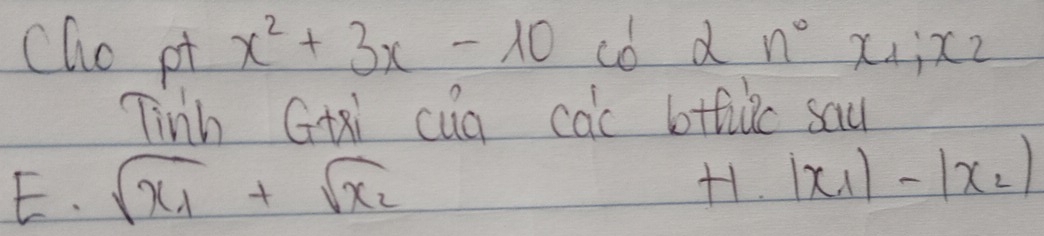 Cho pt x² + 3x - 10 có 2 n° x₁; x₂
Tính Gtrị của các bthức sau
E. √x₁ + √x₂ H. |x₁| - |x₂|